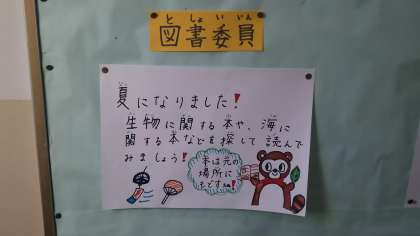 としょいいん
図書委員
夏になりました!
生物に関する本や、海に
関する本などを探して読んで
みましょう!
本は元の
場所に
もどすね!